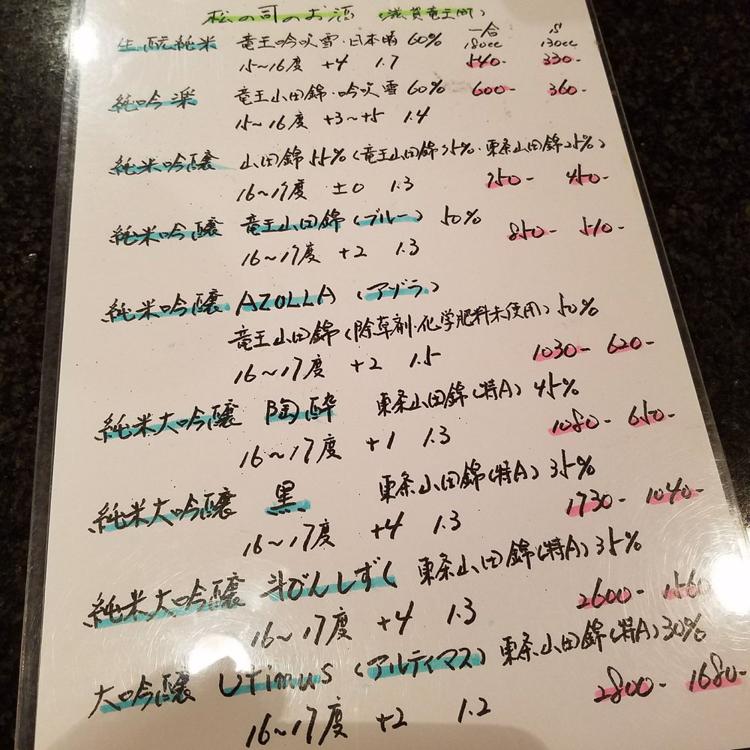 松の司のお酒 (滋賀竜王町)
一合 S
180cc 130cc
生酛純米 竜王吟吹雪・日本晴 60%
15~16度 +4 1.7 540- 330-
純吟 楽 竜王山田錦・吟吹雪 60% 600- 360-
15~16度 +3~+5 1.4
純米吟醸 山田錦 55% (竜王山田錦 75%・東条山田錦 25%)
16~17度 ±0 1.3 750- 450-
純米吟醸 竜王山田錦 (ブルー) 50%
16~17度 +2 1.3 850- 510-
純米吟醸 AZOLLA (アゾラ)
竜王山田錦 (除草剤・化学肥料未使用) 50%
16~17度 +2 1.5 1030- 620-
純米大吟醸 陶酔 東条山田錦(特A) 45%
16~17度 +1 1.3 1080- 650-
純米大吟醸 黒 東条山田錦(特A) 35%
16~17度 +4 1.3 1730- 1040-
純米大吟醸 斗びんしずく 東条山田錦(特A) 35%
16~17度 +4 1.3 2600- 1560-
大吟醸 Utimus (アルティマス) 東条山田錦(特A) 30%
16~17度 +2 1.2 2800- 1680-